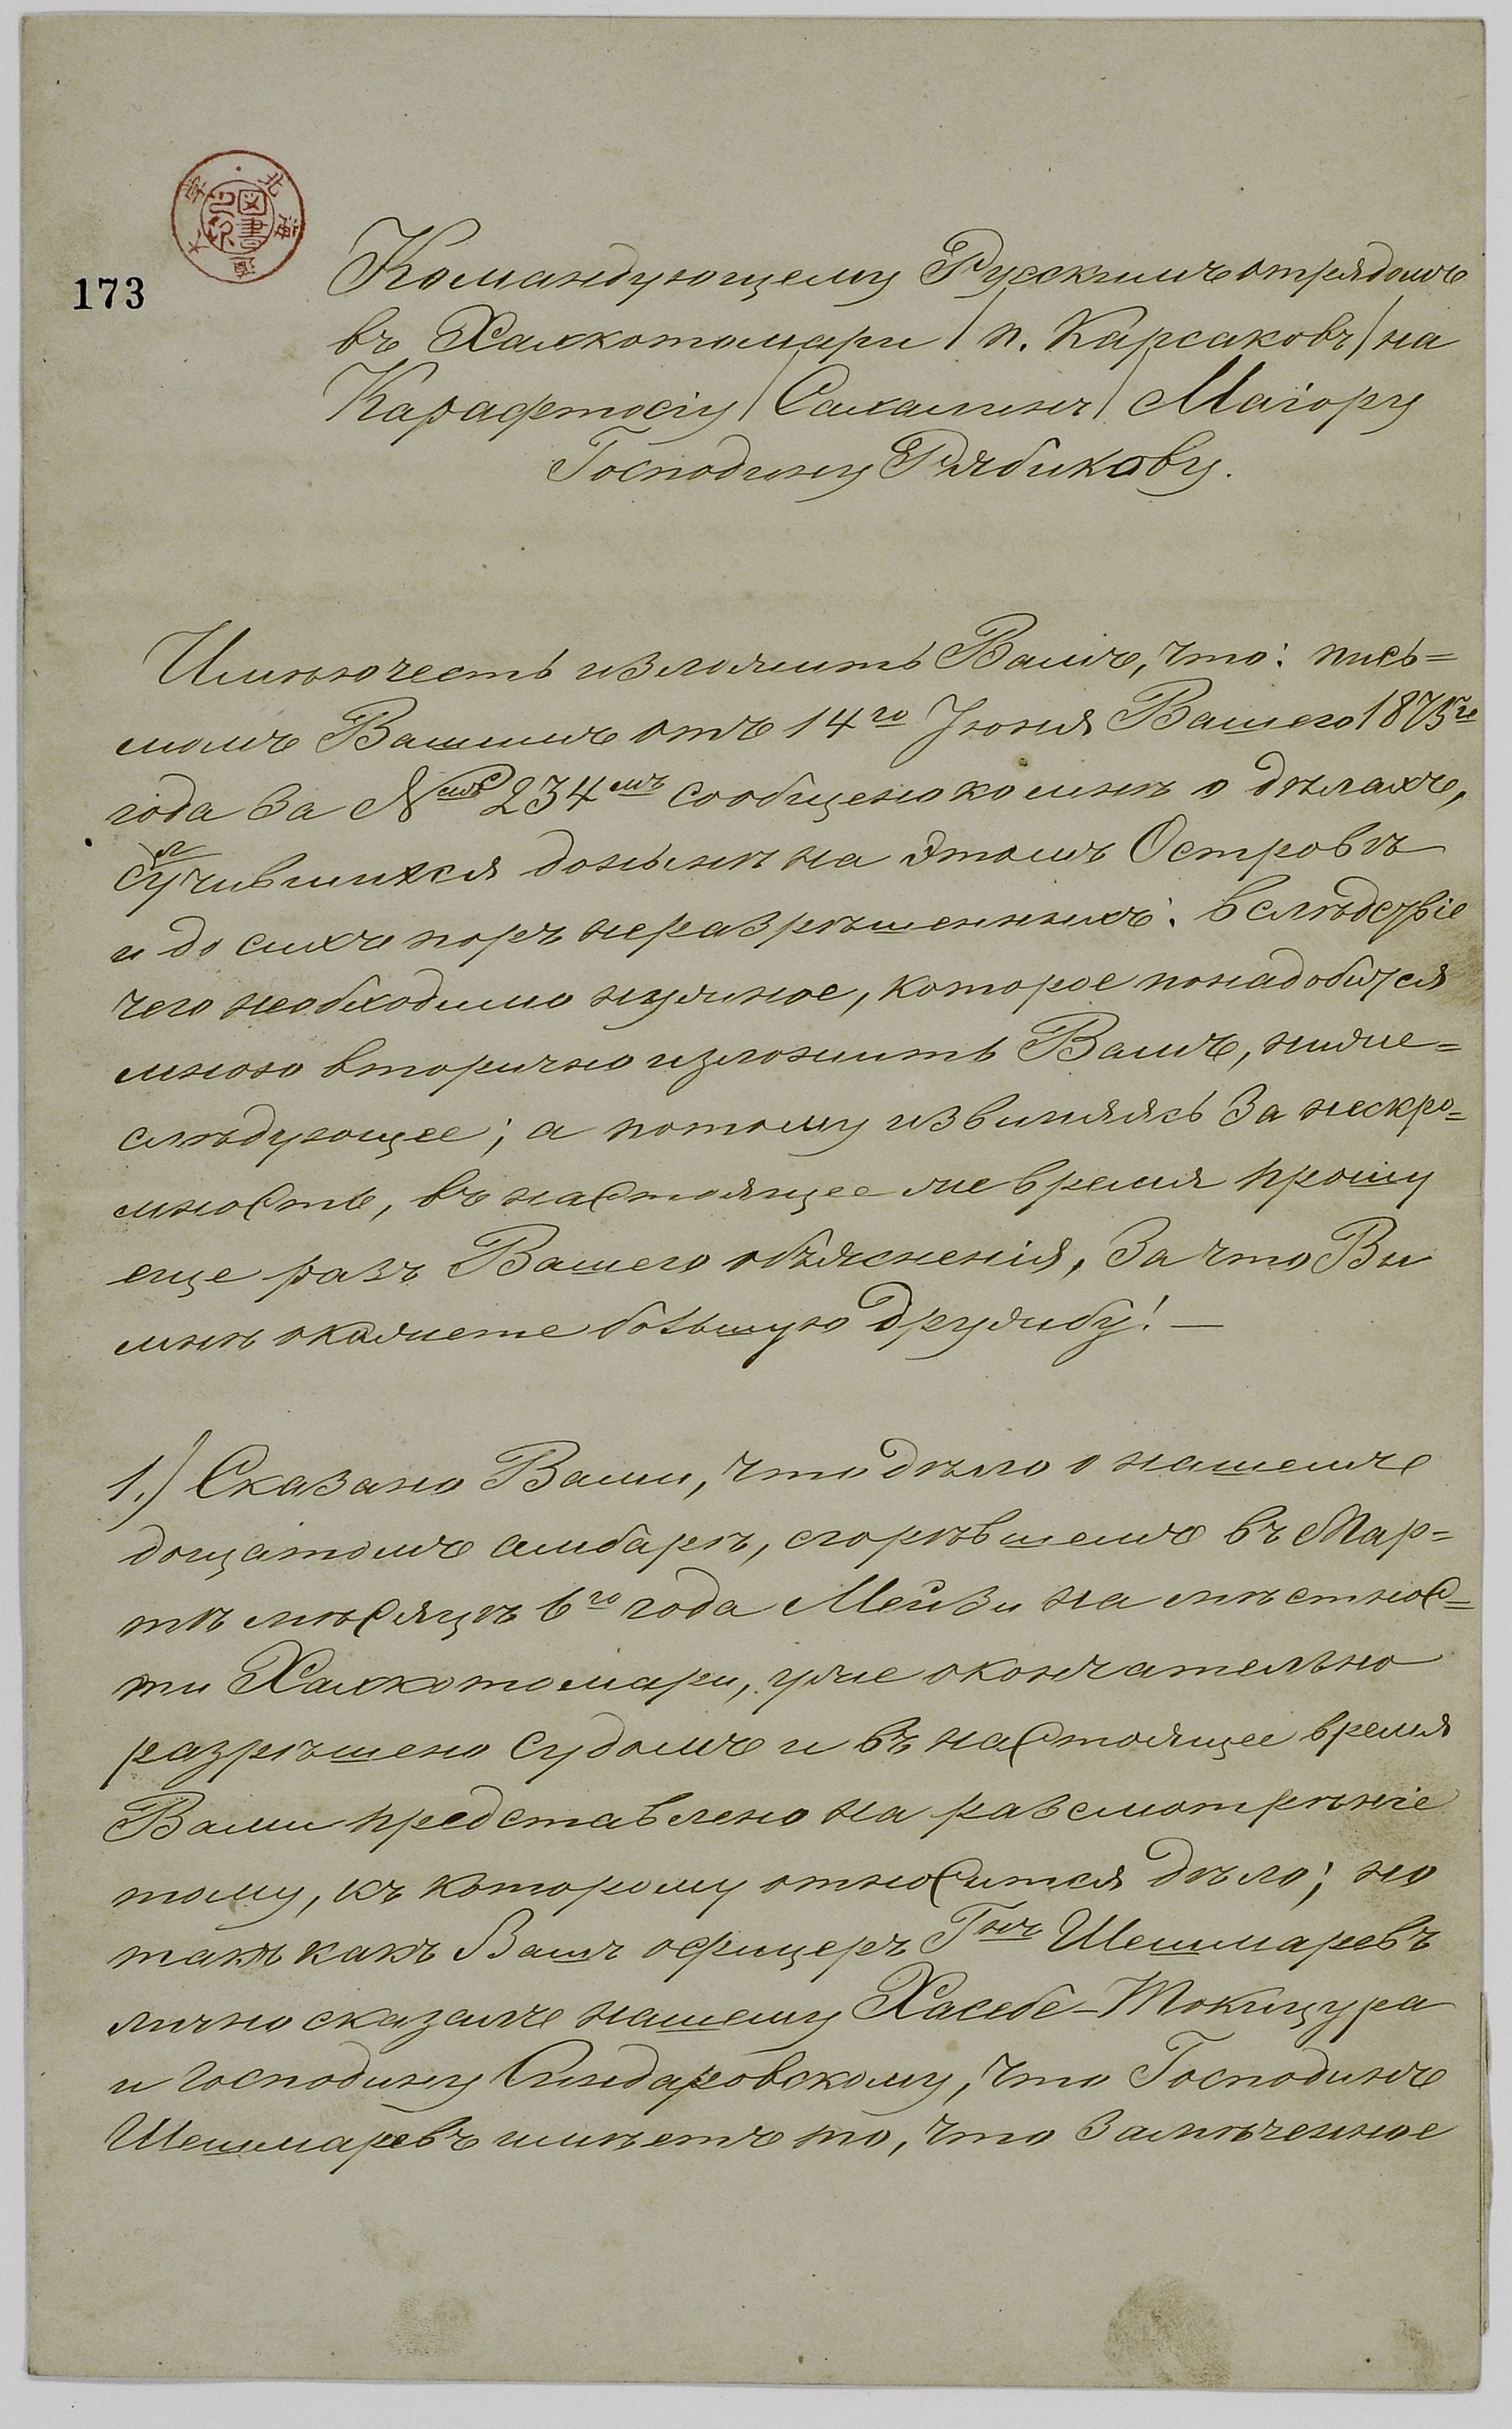 北海道大学
図書之印
173
Командующему Рускимъ отрядомъ
въ Хаккотомари / п. Карсаковъ / на
Карафтосiу / Сахалинъ / Маiору
Господину Рябикову.
Имѣю честь изложить Вамъ, что: пись=
момъ Вашимъ отъ 14го Iюня Вашего 1875го
года за №мъ 234мъ сообщено ко мнѣ о дѣлахъ,
случившихся донынѣ на этомъ Островѣ
и до сихъ поръ неразрѣшенныхъ. Вслѣдствiе
чего необходимо нужное, которое понадобится
мною вторично изложить Вамъ, ниже=
слѣдующее; а потому извиняясь за нескро=
мность, въ настоящее же время прошу
еще разъ Вашего объясненiя, за что Вы
мнѣ окажете большую дружбу! —
1.) Сказано Вами, что дѣло о нашемъ
дощатомъ амбарѣ, сгорѣвшемъ въ Мар=
тѣ мѣсяцѣ 6го года Мейзи на мѣстнос=
ти Хаккотомари, уже окончательно
разрѣшено судомъ и въ настоящее время
Вами представлено на разсмотрѣнiе
тому, къ которому относится дѣло; но
такъ какъ Вашъ офицеръ Гнъ Шешмаревъ
лично сказалъ нашему Хасебе-Токицура
и господину Синдаровскому, что Господинъ
Шешмаревъ имѣетъ то, что замѣченное